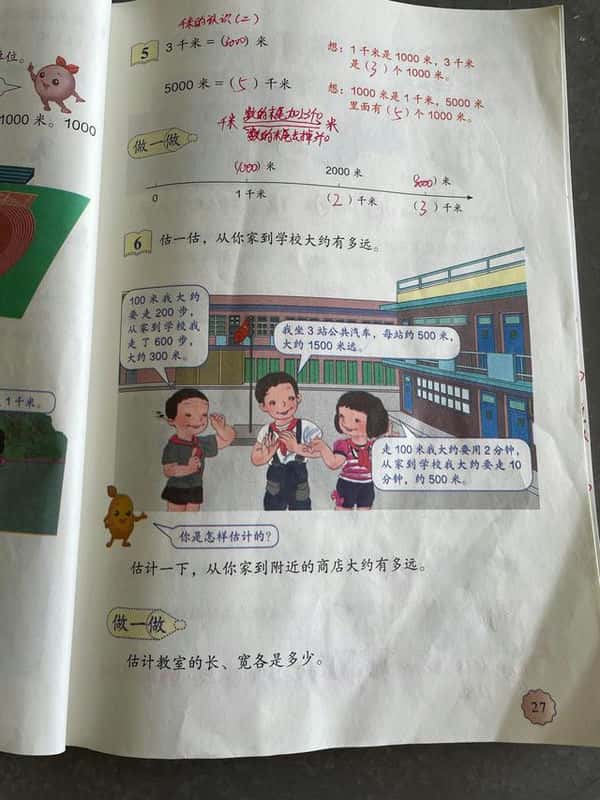 千米的认识(二)
位。
5 3千米=(3000)米
想：1千米是1000米，3千米
是(3)个1000米。
5000米=(5)千米
想：1000米是1千米，5000米
里面有(5)个1000米。
1000米。1000
千米 数的末尾加上3个0 米
数的末尾去掉3个0
做一做
(1000)米 2000米 (3000)米
0 1千米 (2)千米 (3)千米
6 估一估，从你家到学校大约有多远。
100米我大约
要走200步，
从家到学校我
走了600步，
大约300米。
我坐3站公共汽车，每站约500米，
大约1500米远。
1千米。
走100米我大约要用2分钟，
从家到学校我大约要走10
分钟，约500米。
你是怎样估计的？
估计一下，从你家到附近的商店大约有多远。
做一做
估计教室的长、宽各是多少。
27